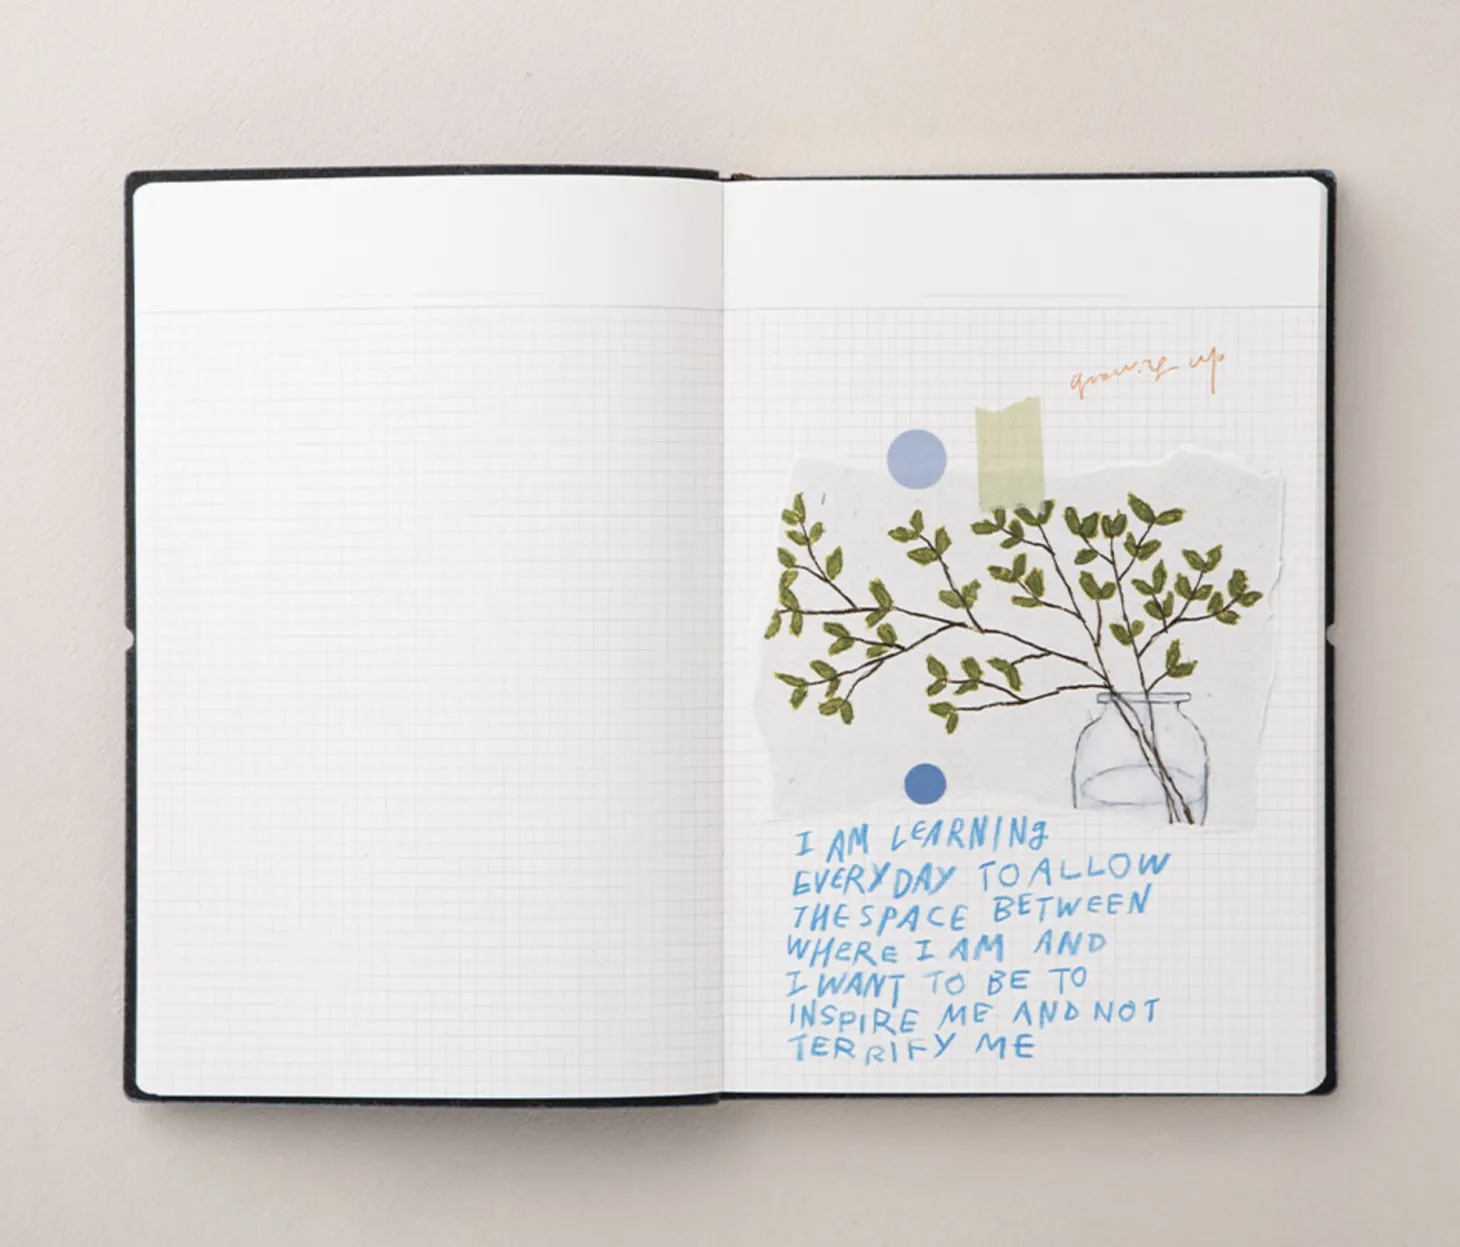 growing up
I AM LEARNINg
EVERYDAY TO ALLOW
THE SPACE BETWEEN
WHERE I AM AND
I WANT TO BE TO
INSPIRE ME AND NOT
TERRIFY ME